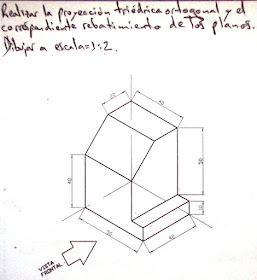 Realizar la proyección triédrica ortogonal y el
correspondiente rebatimiento de los planos.
Dibujar a escala=1:2.
20
40
50
40
10
50
40
VISTA
FRONTAL